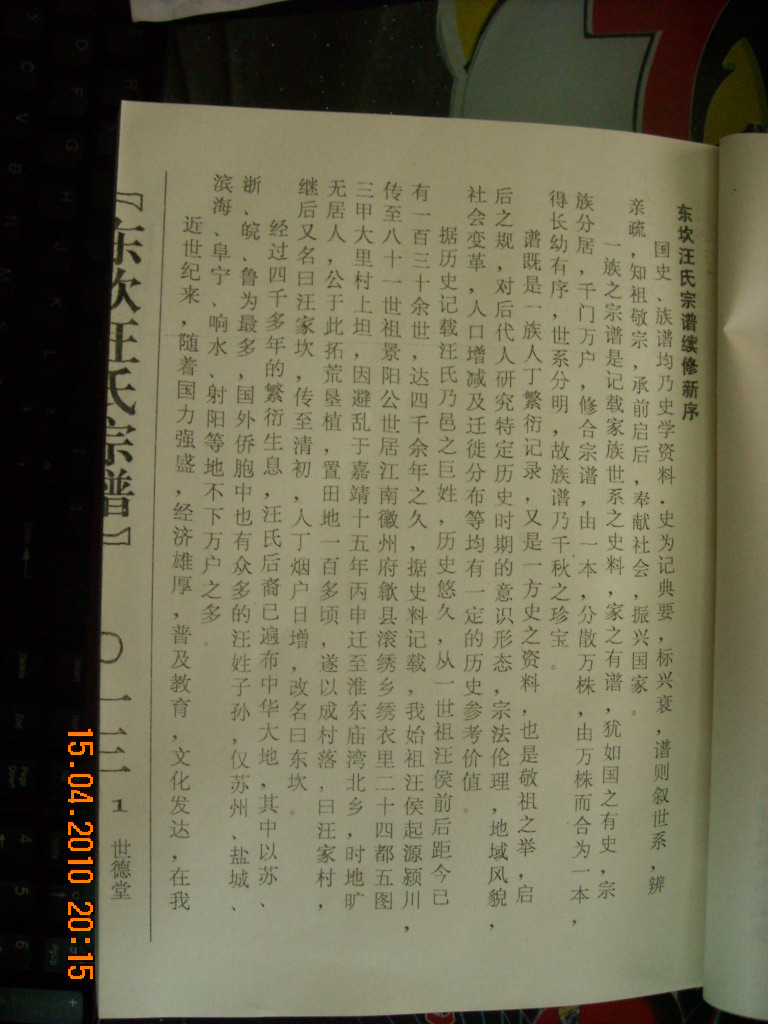 东坎汪氏宗谱续修新序
国史、族谱均乃史学资料．史为记典要，标兴衰，谱则叙世系，辨
亲疏，知祖敬宗，承前启后，奉献社会，振兴国家。
一族之宗谱是记载家族世系之史料，家之有谱，犹如国之有史，宗
族分居，千门万户，修合宗谱，由一本，分散万株，由万株而合为一本，
得长幼有序，世系分明，故族谱乃千秋之珍宝。
谱既是一族人丁繁衍记录，又是一方史之资料，也是敬祖之举，启
后之规，对后代人研究特定历史时期的意识形态，宗法伦理，地域风貌，
社会变革，人口增减及迁徙分布等均有一定的历史参考价值。
据历史记载汪氏乃邑之巨姓，历史悠久，从一世祖汪侯前后距今已
有一百三十余世，达四千余年之久，据史料记载，我始祖汪侯起源颍川，
传至八十一世祖景阳公世居江南徽州府歙县滚绣乡绣衣里二十四都五图
三甲大里村上坦，因避乱于嘉靖十五年丙申迁至淮东庙湾北乡，时地旷
无居人，公于此拓荒垦植，置田地一百多顷，遂以成村落，曰汪家村，
继后又名曰汪家坎，传至清初，人丁烟户日增，改名曰东坎。
经过四千多年的繁衍生息，汪氏后裔已遍布中华大地，其中以苏、
浙、皖、鲁为最多，国外侨胞中也有众多的汪姓子孙，仅苏州、盐城、
滨海、阜宁、响水、射阳等地不下万户之多。
近世纪来，随着国力强盛，经济雄厚，普及教育，文化发达，在我
『东坎汪氏宗谱』
〇一三
1
世德堂
15.04.2010 20:15